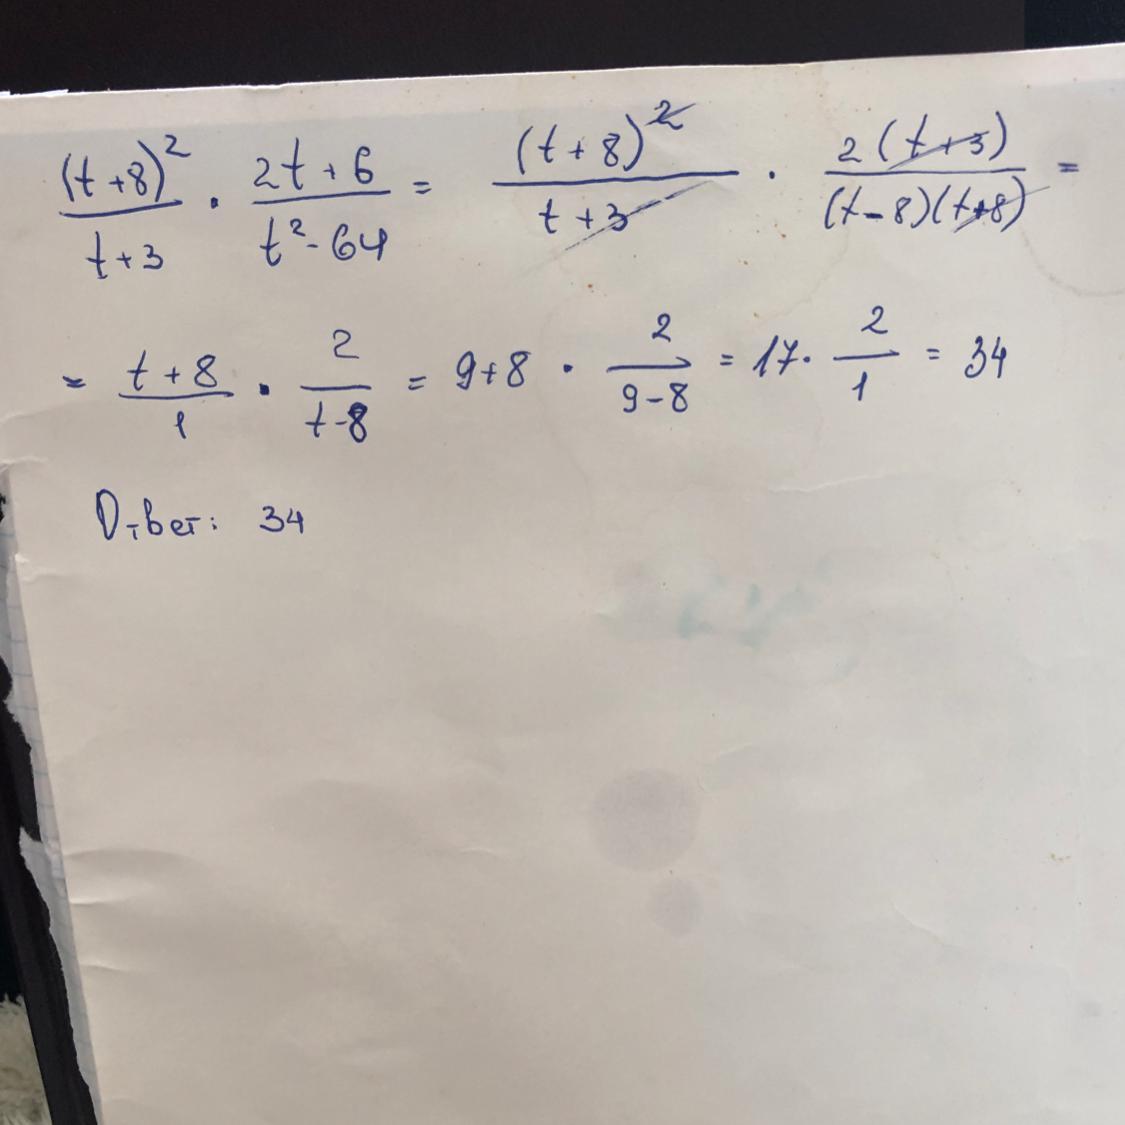 (t+8)² / (t+3) · (2t+6) / (t²-64) = (t+8)² / (t+3) · 2(t+3) / ((t-8)(t+8)) =
= (t+8) / 1 · 2 / (t-8) = 9+8 · 2 / (9-8) = 17 · 2 / 1 = 34
Ответ: 34